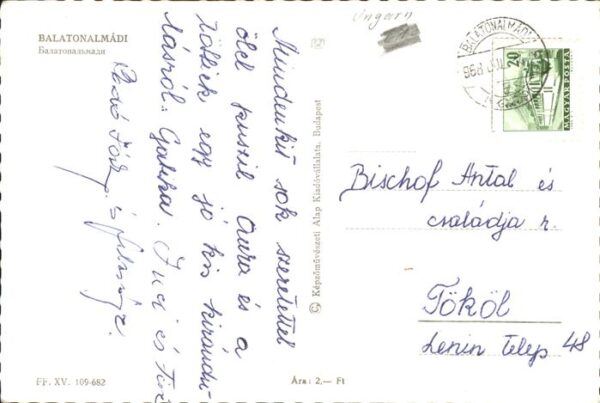 BALATONALMÁDI
Балатоналмади
Ungarn
BALATONALMÁDI
968
20
MAGYAR POSTA
Mindenkit sok szeretettel
ölel kuszil Aura és a
többiek egy jó kis kirándu-
lásról. Gabika. Juci és
és felesége.
© Képzőművészeti Alap Kiadóvállalata, Budapest
Bischof Antal és
családja r.
Tököl
Lenin telep 48
FF. XV. 109-682
Ára: 2,— Ft